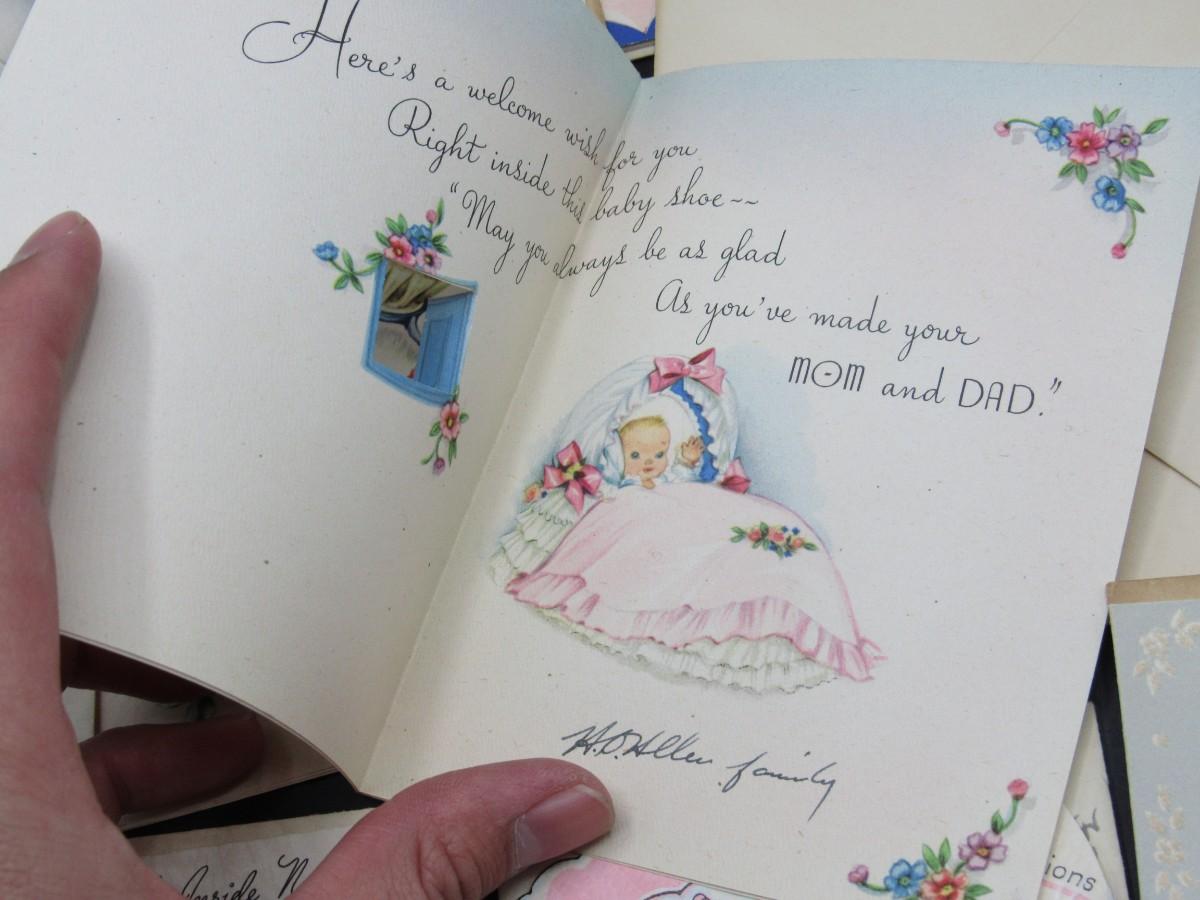 Here's a welcome wish for you
Right inside this baby shoe~~
"May you always be as glad
As you've made your
MOM and DAD."
H.O. Allen family
Inside
ions